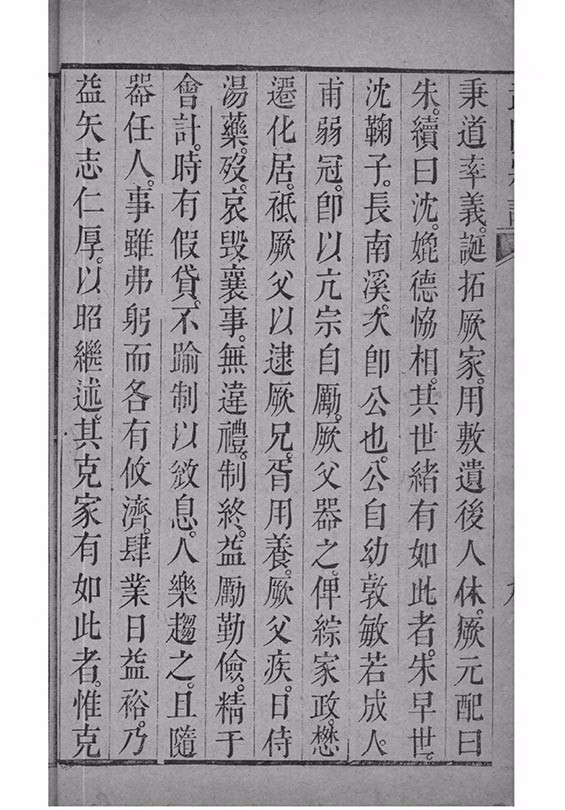 秉道率義。誕拓厥家。用敷遺後人休。厥元配曰
朱。續曰沈。媲德恊相。其世緒有如此者。朱早世。
沈鞠子。長南溪。次卽公也。公自幼敦敏若成人。
甫弱冠。卽以亢宗自勵。厥父器之。俾綜家政。懋
遷化居。祗厥父以逮厥兄。胥用養。厥父疾。日侍
湯藥。歿。哀毀襄事。無違禮。制終。益勵勤儉。精于
會計。時有假貸。不踰制以斂息。人樂趨之。且隨
器任人。事雖弗躬而各有攸濟。肆業日益裕。乃
益矢志仁厚。以昭繼述。其克家有如此者。惟克